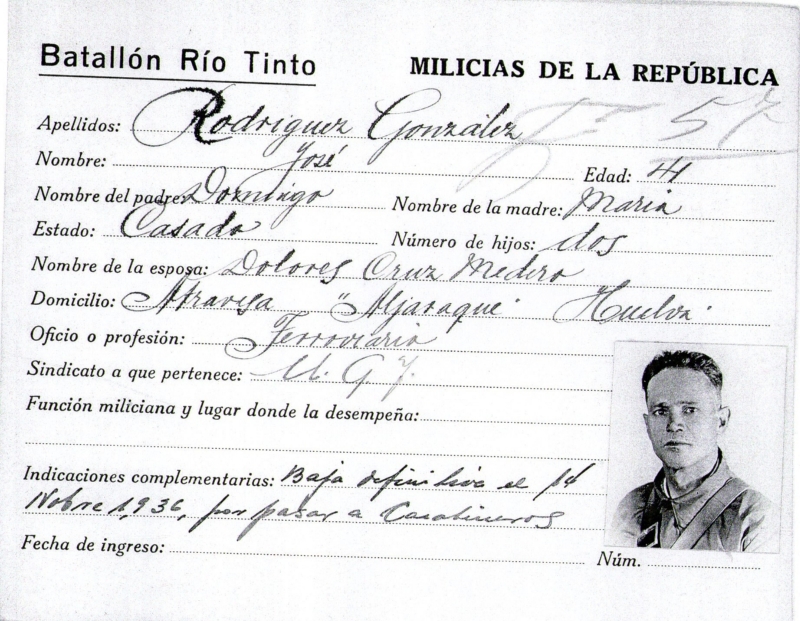 Batallón Río Tinto MILICIAS DE LA REPÚBLICA
Apellidos: Rodriguez González 57
Nombre: José Edad: 41
Nombre del padre: Domingo Nombre de la madre: Maria
Estado: Casado Número de hijos: dos
Nombre de la esposa: Dolores Cruz Medero
Domicilio: "Aljaraque" Huelva
Oficio o profesión: Ferroviario
Sindicato a que pertenece: U. G. T.
Función miliciana y lugar donde la desempeña:
Indicaciones complementarias: Baja definitiva el 14
Nobre 1,936, por pasar a Carabineros
Fecha de ingreso: Núm.